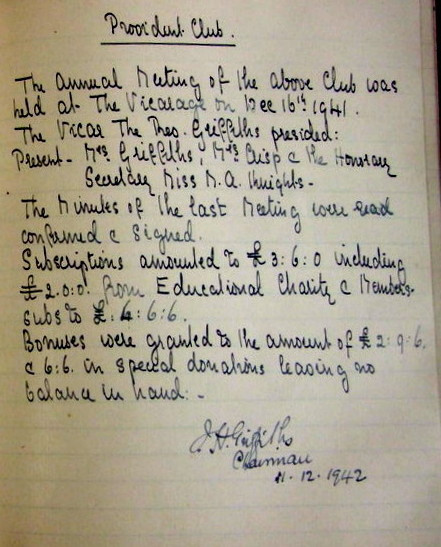 Provident Club.
The Annual Meeting of the above Club was
held at The Vicarage on Dec 16th 1941.
The Vicar The Rev. Griffiths presided:
Present - Mrs Griffiths, Mrs Crisp & the Honorary
Secretary Miss M. A. Knights -
The Minutes of the last Meeting were read
confirmed & signed.
Subscriptions amounted to £3:6:0 including
£2.0.0. from Educational Charity & Members-
subs to £.4:6:6.
Bonuses were granted to the amount of £2:9:6.
& 6:6. in special donations leaving no
balance in hand: -
J. H. Griffiths
Chairman
11.12.1942